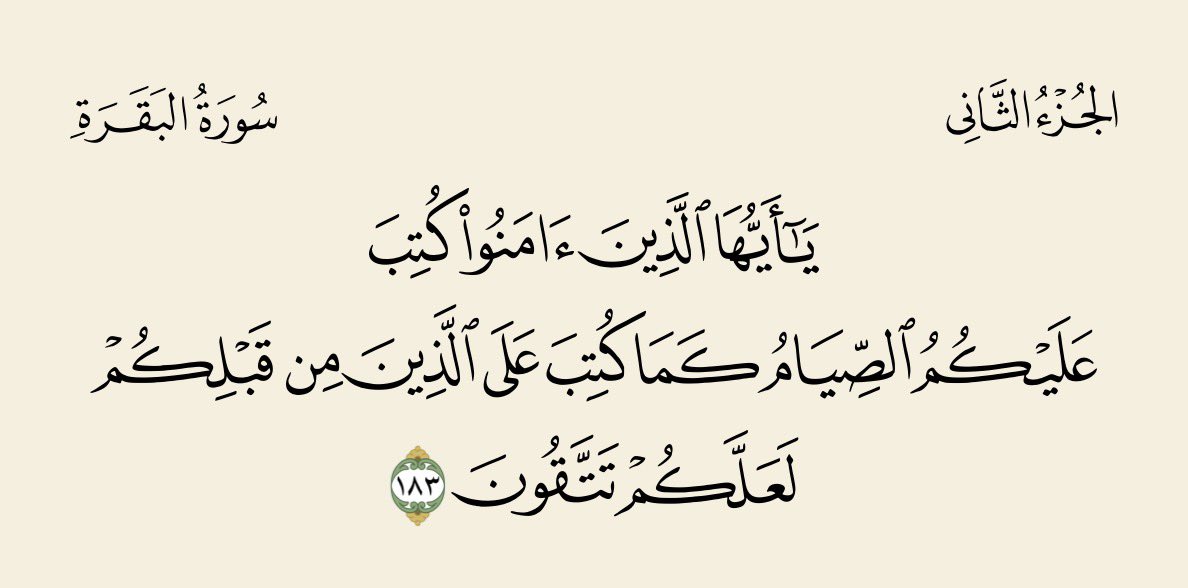 الجُزْءُ الثَّانِى
سُورَةُ البَقَرَةِ
يَـٰٓأَيُّهَا ٱلَّذِينَ ءَامَنُوا۟ كُتِبَ
عَلَيْكُمُ ٱلصِّيَامُ كَمَا كُتِبَ عَلَى ٱلَّذِينَ مِن قَبْلِكُمْ
لَعَلَّكُمْ تَتَّقُونَ ١٨٣